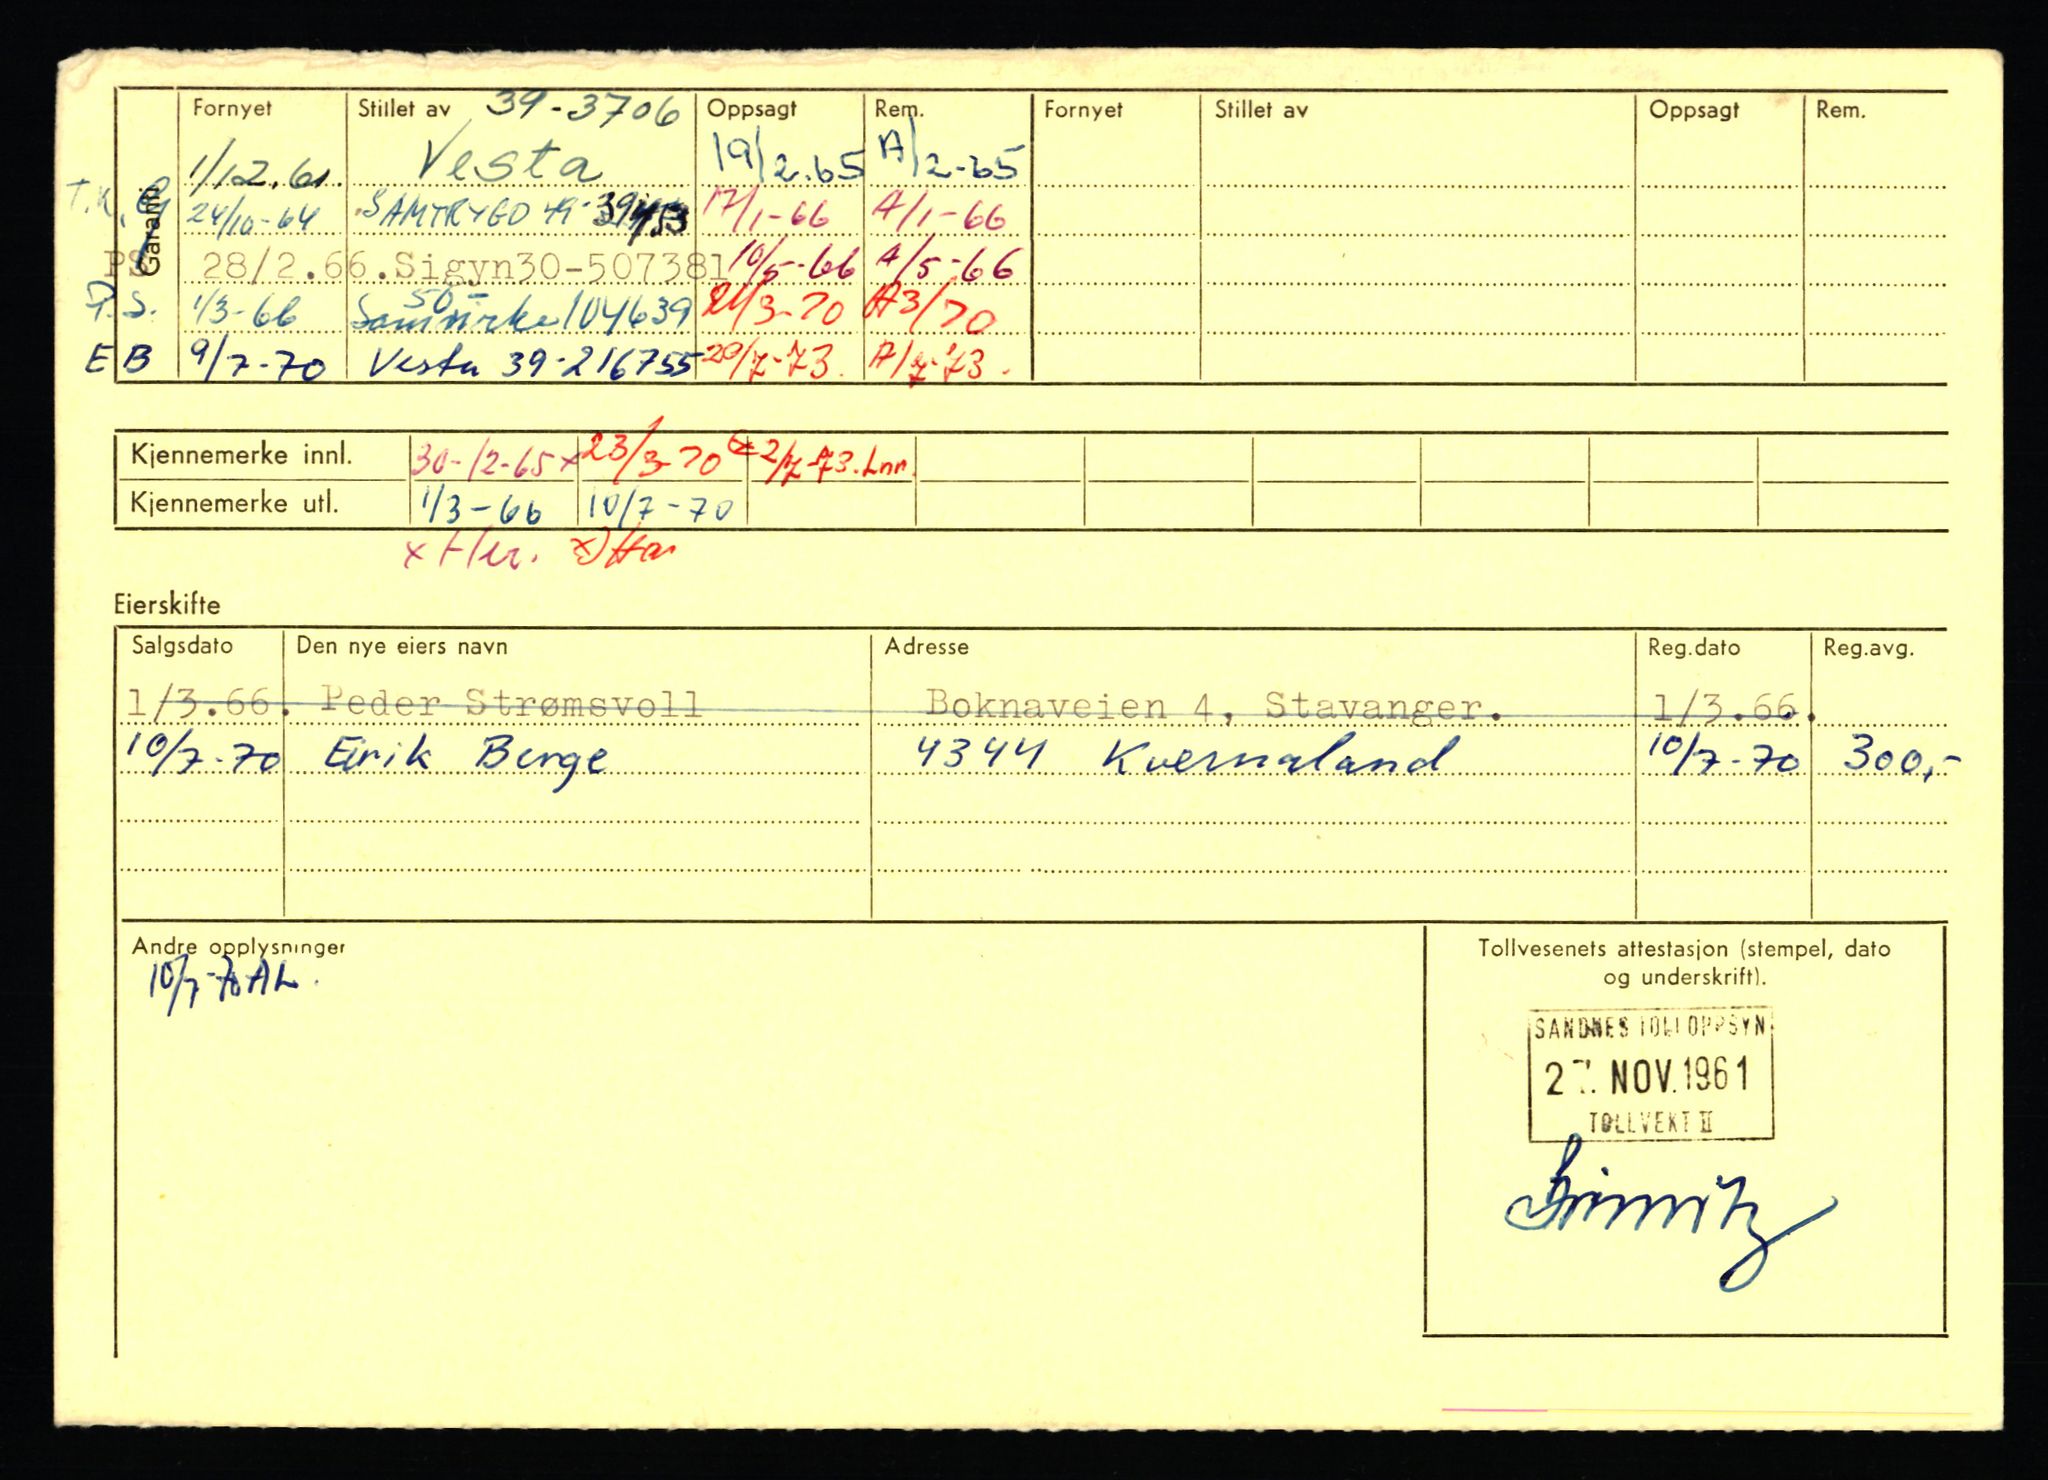 Fornyet Stillet av 39-3706 Oppsagt Rem. Fornyet Stillet av Oppsagt Rem.
Garanti
1/12.61. Vesta 19/2.65 A/2-65
24/10-64 SAMTRYGD 17/1-66 A/1-66
PS 28/2.66. Sigyn30-507381 10/5-66 A/5-66
P.S. 1/3-66 50- Samvirke 104639 21/3-70 A3/70
EB 9/7-70 Vesta 39-216755 20/7-73. A/7-73.
Kjennemerke innl. 30-12-65x 23/3-70 2/7-73. Lnr.
Kjennemerke utl. 1/3-66 10/7-70
Eierskifte
Salgsdato Den nye eiers navn Adresse Reg.dato Reg.avg.
1/3.66. Peder Strømsvoll Boknaveien 4, Stavanger. 1/3.66.
10/7-70 Eirik Berge 4344 Kvernaland 10/7-70 300,-
Andre opplysninger
10/7-70 AL.
Tollvesenets attestasjon (stempel, dato
og underskrift).
SANDNES TOLLOPPSYN
27. NOV. 1961
TOLLVEKT II